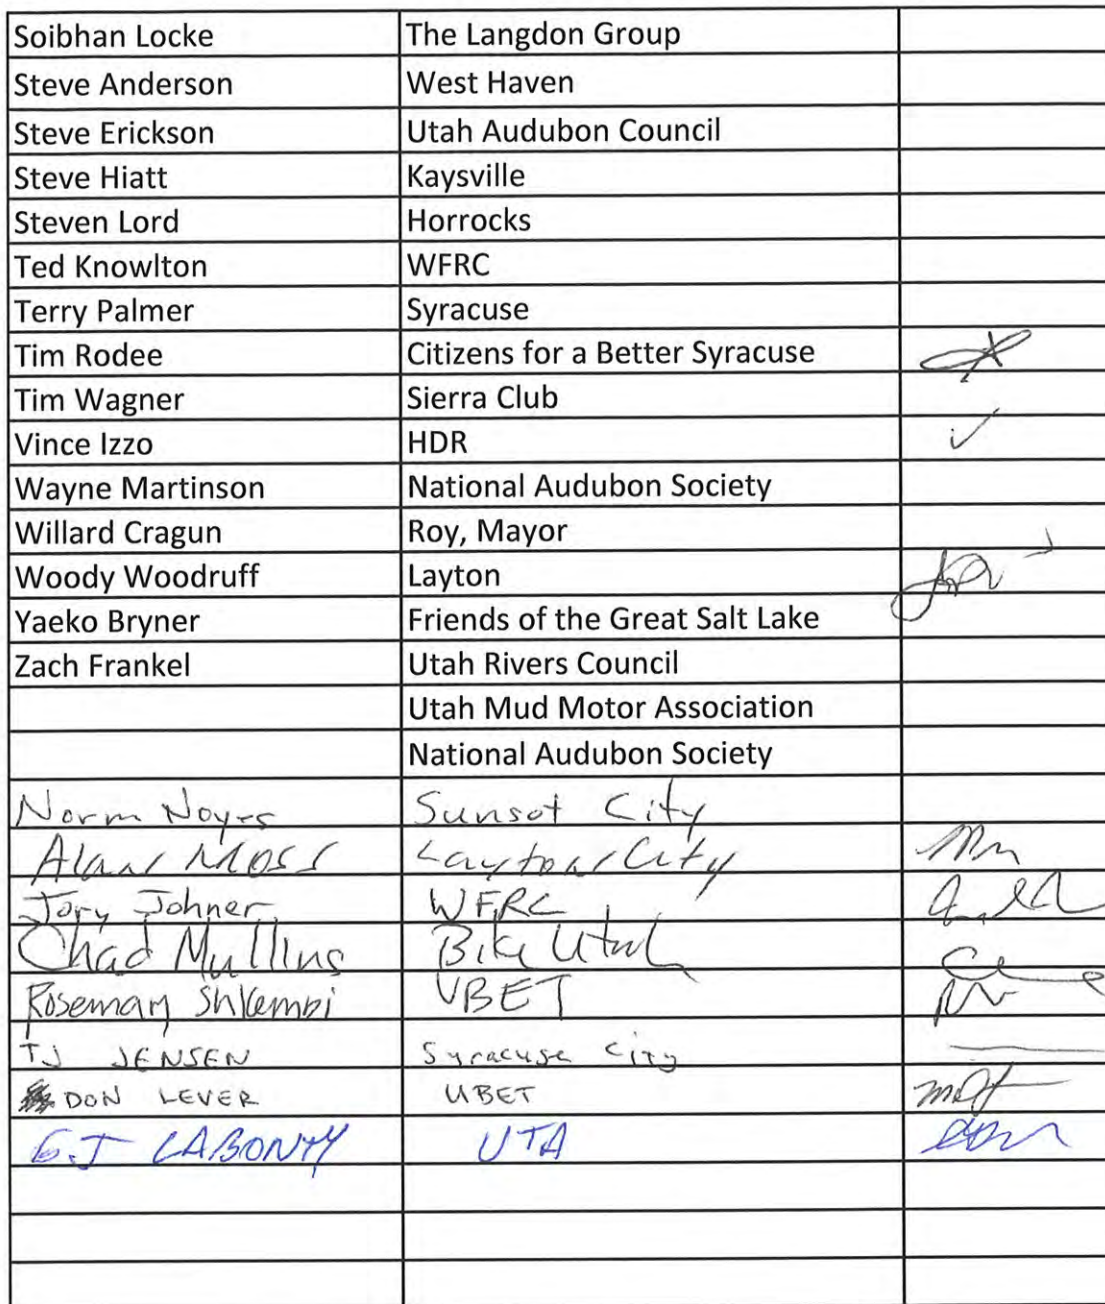 Soibhan Locke The Langdon Group
Steve Anderson West Haven
Steve Erickson Utah Audubon Council
Steve Hiatt Kaysville
Steven Lord Horrocks
Ted Knowlton WFRC
Terry Palmer Syracuse
Tim Rodee Citizens for a Better Syracuse
Tim Wagner Sierra Club
Vince Izzo HDR ✓
Wayne Martinson National Audubon Society
Willard Cragun Roy, Mayor
Woody Woodruff Layton
Yaeko Bryner Friends of the Great Salt Lake
Zach Frankel Utah Rivers Council
Utah Mud Motor Association
National Audubon Society
Norm Noyes Sunset City
Alan Moss Layton City
Jory Johner WFRC
Chad Mullins Bike Utah
Rosemary Shkembi UBET
TJ JENSEN Syracuse City
DON LEVER UBET
G.J LABONTY UTA